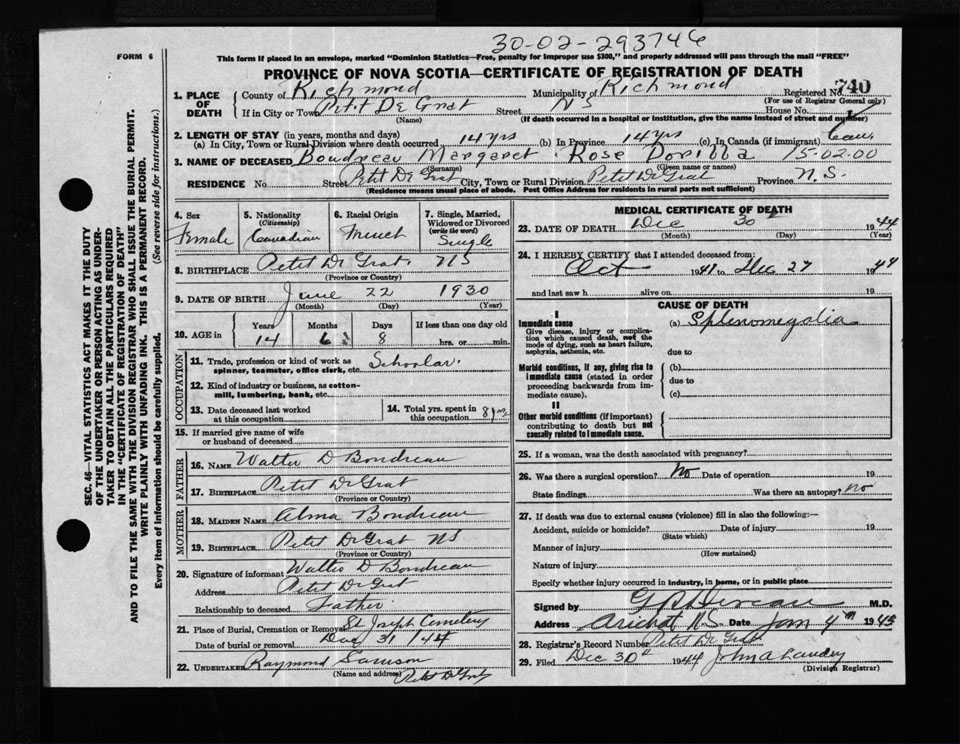 30-02-293746
FORM 6
This form if placed in an envelope, marked "Dominion Statistics—Free, penalty for improper use $300," and properly addressed will pass through the mail "FREE"
PROVINCE OF NOVA SCOTIA—CERTIFICATE OF REGISTRATION OF DEATH
1. PLACE OF DEATH County of Richmond Municipality of Richmond Registered No. 740
(For use of Registrar General only)
If in City or Town Petit De Grat Street NS House No.
(Name) (If death occurred in a hospital or institution, give the name instead of street and number)
2. LENGTH OF STAY (in years, months and days)
(a) In City, Town or Rural Division where death occurred 14 yrs (b) In Province 14 yrs (c) In Canada (if immigrant) Can.
3. NAME OF DECEASED Boudreau Margaret Rose Dorilla 15-02-00
(Surname) (Given name or names)
RESIDENCE No Street Petit De Grat City, Town or Rural Division Petit De Grat Province N.S.
(Residence means usual place of abode. Post Office Address for residents in rural parts not sufficient)
4. Sex Female
5. Nationality (Citizenship) Canadian
6. Racial Origin French
7. Single, Married, Widowed or Divorced (write the word) Single
8. BIRTHPLACE Petit De Grat. NS
(Province or Country)
9. DATE OF BIRTH June 22 1930
(Month) (Day) (Year)
10. AGE in Years Months Days If less than one day old
14 6 8 hrs. or min.
OCCUPATION
11. Trade, profession or kind of work as spinner, teamster, office clerk, etc. Schoolar.
12. Kind of industry or business, as cotton-mill, lumbering, bank, etc.
13. Date deceased last worked at this occupation
14. Total yrs. spent in this occupation 8 yrs
15. If married give name of wife or husband of deceased
FATHER
16. NAME Walter D Boudreau
17. BIRTHPLACE Petit De Grat
(Province or Country)
MOTHER
18. MAIDEN NAME Alma Boudreau
19. BIRTHPLACE Petit De Grat NS
(Province or Country)
20. Signature of informant Walter D Boudreau
Address Petit De Grat
Relationship to deceased Father.
21. Place of Burial, Cremation or Removal St Joseph Cemetery
Date of burial or removal Dec 31 1944
22. UNDERTAKER Raymond Samson
(Name and address) Petit De Grat
MEDICAL CERTIFICATE OF DEATH
23. DATE OF DEATH Dec 30 1944
(Month) (Day) (Year)
24. I HEREBY CERTIFY that I attended deceased from:
Oct 1941 to Dec 27 1944
and last saw h alive on 19
CAUSE OF DEATH
I
Immediate cause
Give disease, injury or complication which caused death, not the mode of dying, such as heart failure, asphyxia, asthenia, etc.
(a) Splenomegalia
due to
Morbid conditions, if any, giving rise to immediate cause (stated in order proceeding backwards from immediate cause).
(b)
due to
(c)
II
Other morbid conditions (if important) contributing to death but not causally related to immediate cause.
25. If a woman, was the death associated with pregnancy?
26. Was there a surgical operation? No Date of operation 19
State findings Was there an autopsy? no
27. If death was due to external causes (violence) fill in also the following:—
Accident, suicide or homicide? Date of injury 19
(State which)
Manner of injury
(How sustained)
Nature of injury
Specify whether injury occurred in industry, in home, or in public place
Signed by M.D.
Address Arichat NS Date Jan 4th 1945
28. Registrar's Record Number Petit De Grat
29. Filed Dec 30th 1944 John A Landry
(Division Registrar)
SEC. 46—VITAL STATISTICS ACT MAKES IT THE DUTY
OF THE UNDERTAKER OR PERSON ACTING AS UNDER-
TAKER TO OBTAIN ALL THE PARTICULARS REQUIRED
IN THE "CERTIFICATE OF REGISTRATION OF DEATH"
AND TO FILE THE SAME WITH THE DIVISION REGISTRAR WHO SHALL ISSUE THE BURIAL PERMIT.
WRITE PLAINLY WITH UNFADING INK. THIS IS A PERMANENT RECORD.
Every item of information should be carefully supplied. (See reverse side for instructions.)